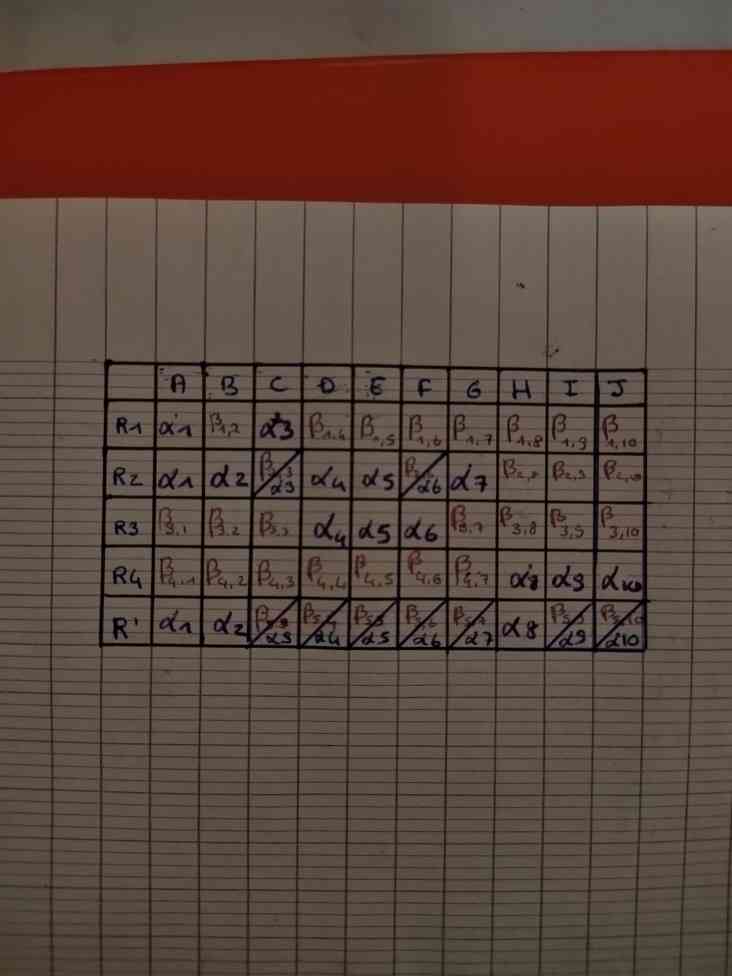 A B C D E F G H I J
R1 α1 β1,2 α3 β1,4 β1,5 β1,6 β1,7 β1,8 β1,9 β1,10
R2 α1 α2 α3 α4 α5 α6 α7 β2,9 β2,10
R3 β3,1 β3,2 α4 α5 α6 β3,7 β3,8 β3,9 β3,10
R4 β4,1 β4,2 β4,3 β4,4 β4,5 β4,6 β4,7 α8 α9 α10
R' α1 α2 α3 α4 α5 α6 α7 α8 α9 α10